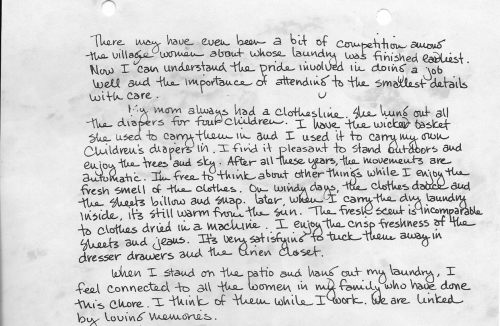 There may have even been a bit of competition among
the village women about whose laundry was finished earliest.
Now I can understand the pride involved in doing a job
well and the importance of attending to the smallest details
with care.
My mom always had a clothesline. She hung out all
the diapers for four children. I have the wicker basket
she used to carry them in and I used it to carry my own
Children's diapers in. I find it pleasant to stand outdoors and
enjoy the trees and sky. After all these years, the movements are
automatic. I'm free to think about other things while I enjoy the
fresh smell of the clothes. On windy days, the clothes dance and
the sheets billow and snap. later, when I carry the dry laundry
inside, it's still warm from the sun. The fresh scent is incomparable
to clothes dried in a machine. I enjoy the crisp freshness of the
sheets and jeans. It's very satisfying to tuck them away in
dresser drawers and the linen closet.
When I stand on the patio and hang out my laundry, I
feel connected to all the women in my family who have done
this chore. I think of them while I work. We are linked
by loving memories.